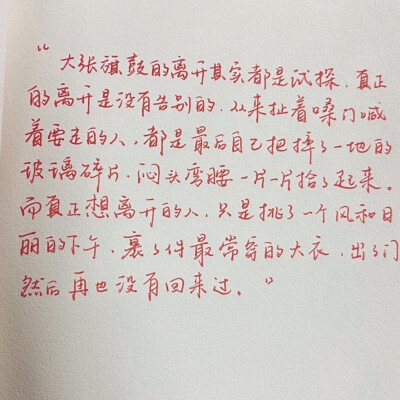 “大张旗鼓的离开其实都是试探，真正
的离开是没有告别的，从来扯着嗓门喊
着要走的人，都是最后自己把摔了一地的
玻璃碎片，闷头弯腰一片一片拾了起来。
而真正想离开的人，只是挑了一个风和日
丽的下午，裹了件最常穿的大衣，出了门
然后再也没有回来过。”